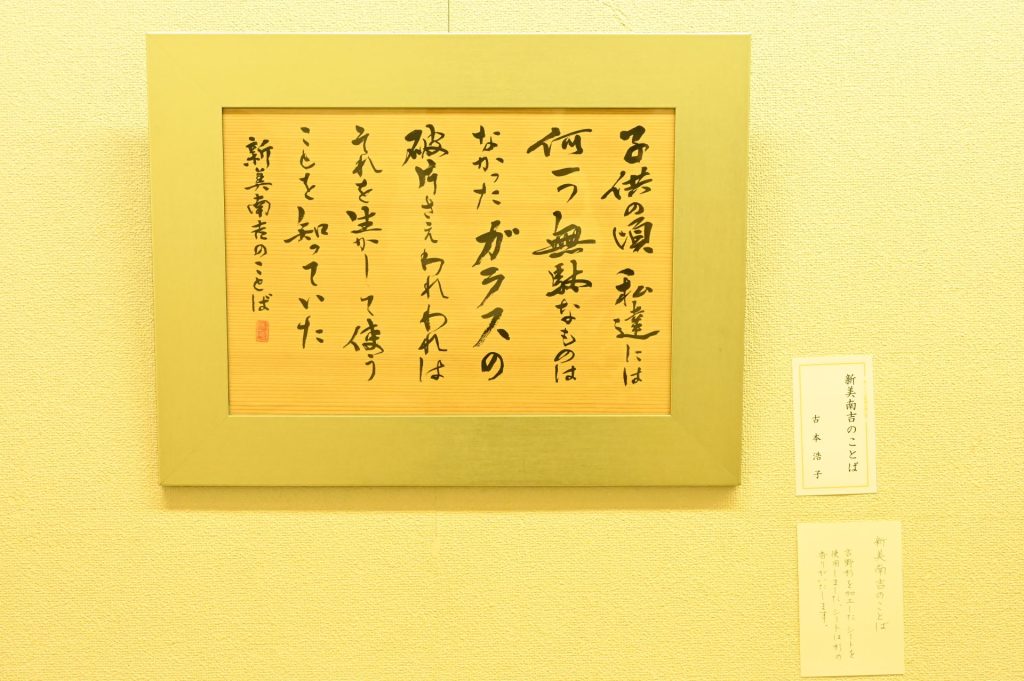 子供の頃 私達には
何一つ無駄なものは
なかった ガラスの
破片さえわれわれは
それを生かして使う
ことを知っていた
新美南吉のことば
新美南吉のことば
古本浩子
新美南吉のことば
吉野杉を加工したシートを
使用しました。シートは杉の
香りがいたします。